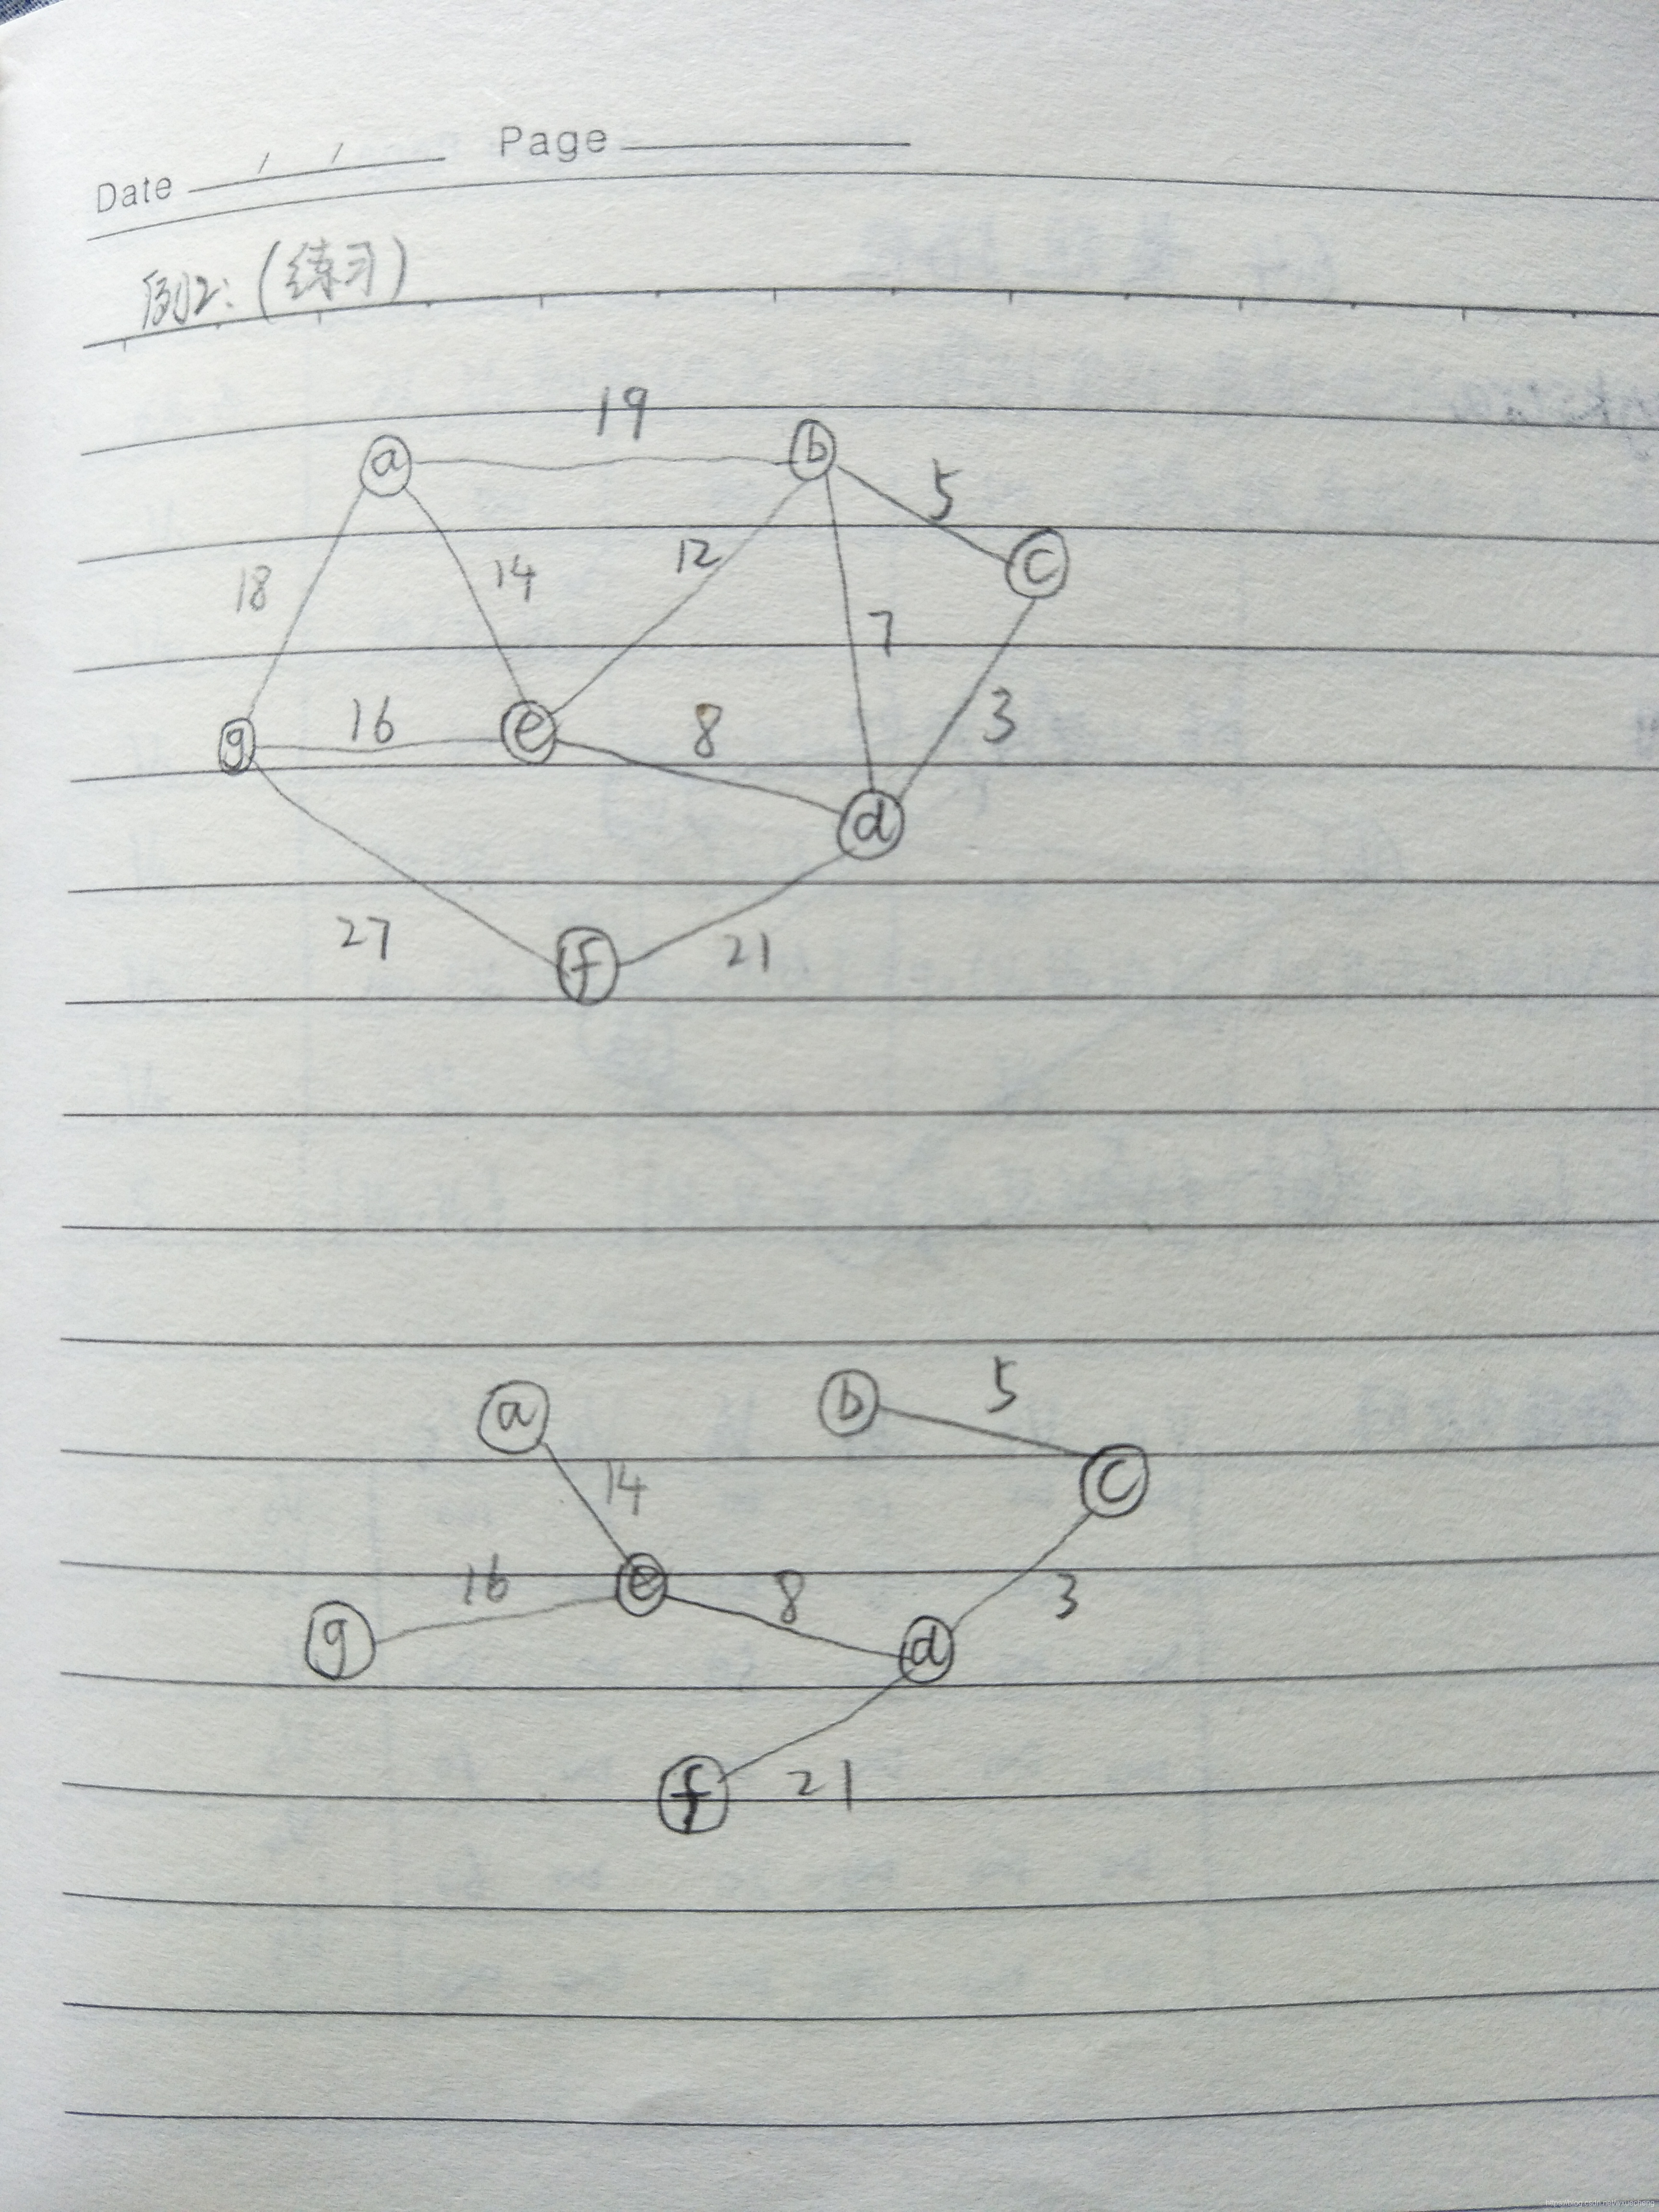 Date / / Page
例2:(练习)
19
a b
5
c
18 14 12
7
g 16 e 8 3
d
27 f 21
a b 5
14 c
16 e 8 3
g d
f 21